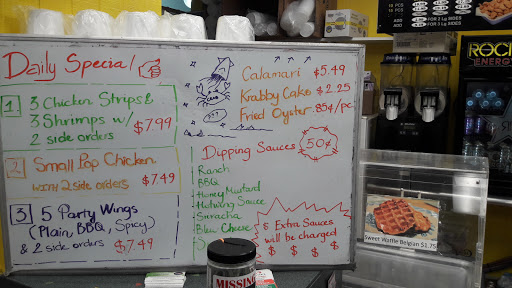 Daily Special
1 3 Chicken Strips &
3 Shrimps w/
2 side orders $7.99
2 Small Pop Chicken
with 2 side orders $7.49
3 5 Party Wings
(Plain, BBQ, Spicy)
& 2 side orders $7.49
Calamari $5.49
Krabby Cake $2.25
Fried Oyster 85¢/pc
Dipping Sauces 50¢
Ranch
BBQ
Honey Mustard
Hot Wing Sauce
Sriracha
Bleu Cheese
$ Extra Sauces
will be charged
$ $ $ $
MISSING
ROCK
ENERGY
Sweet Waffle Belgian $1.75
15 PCS
ADD
ADD
FOR 2 Lg SIDES